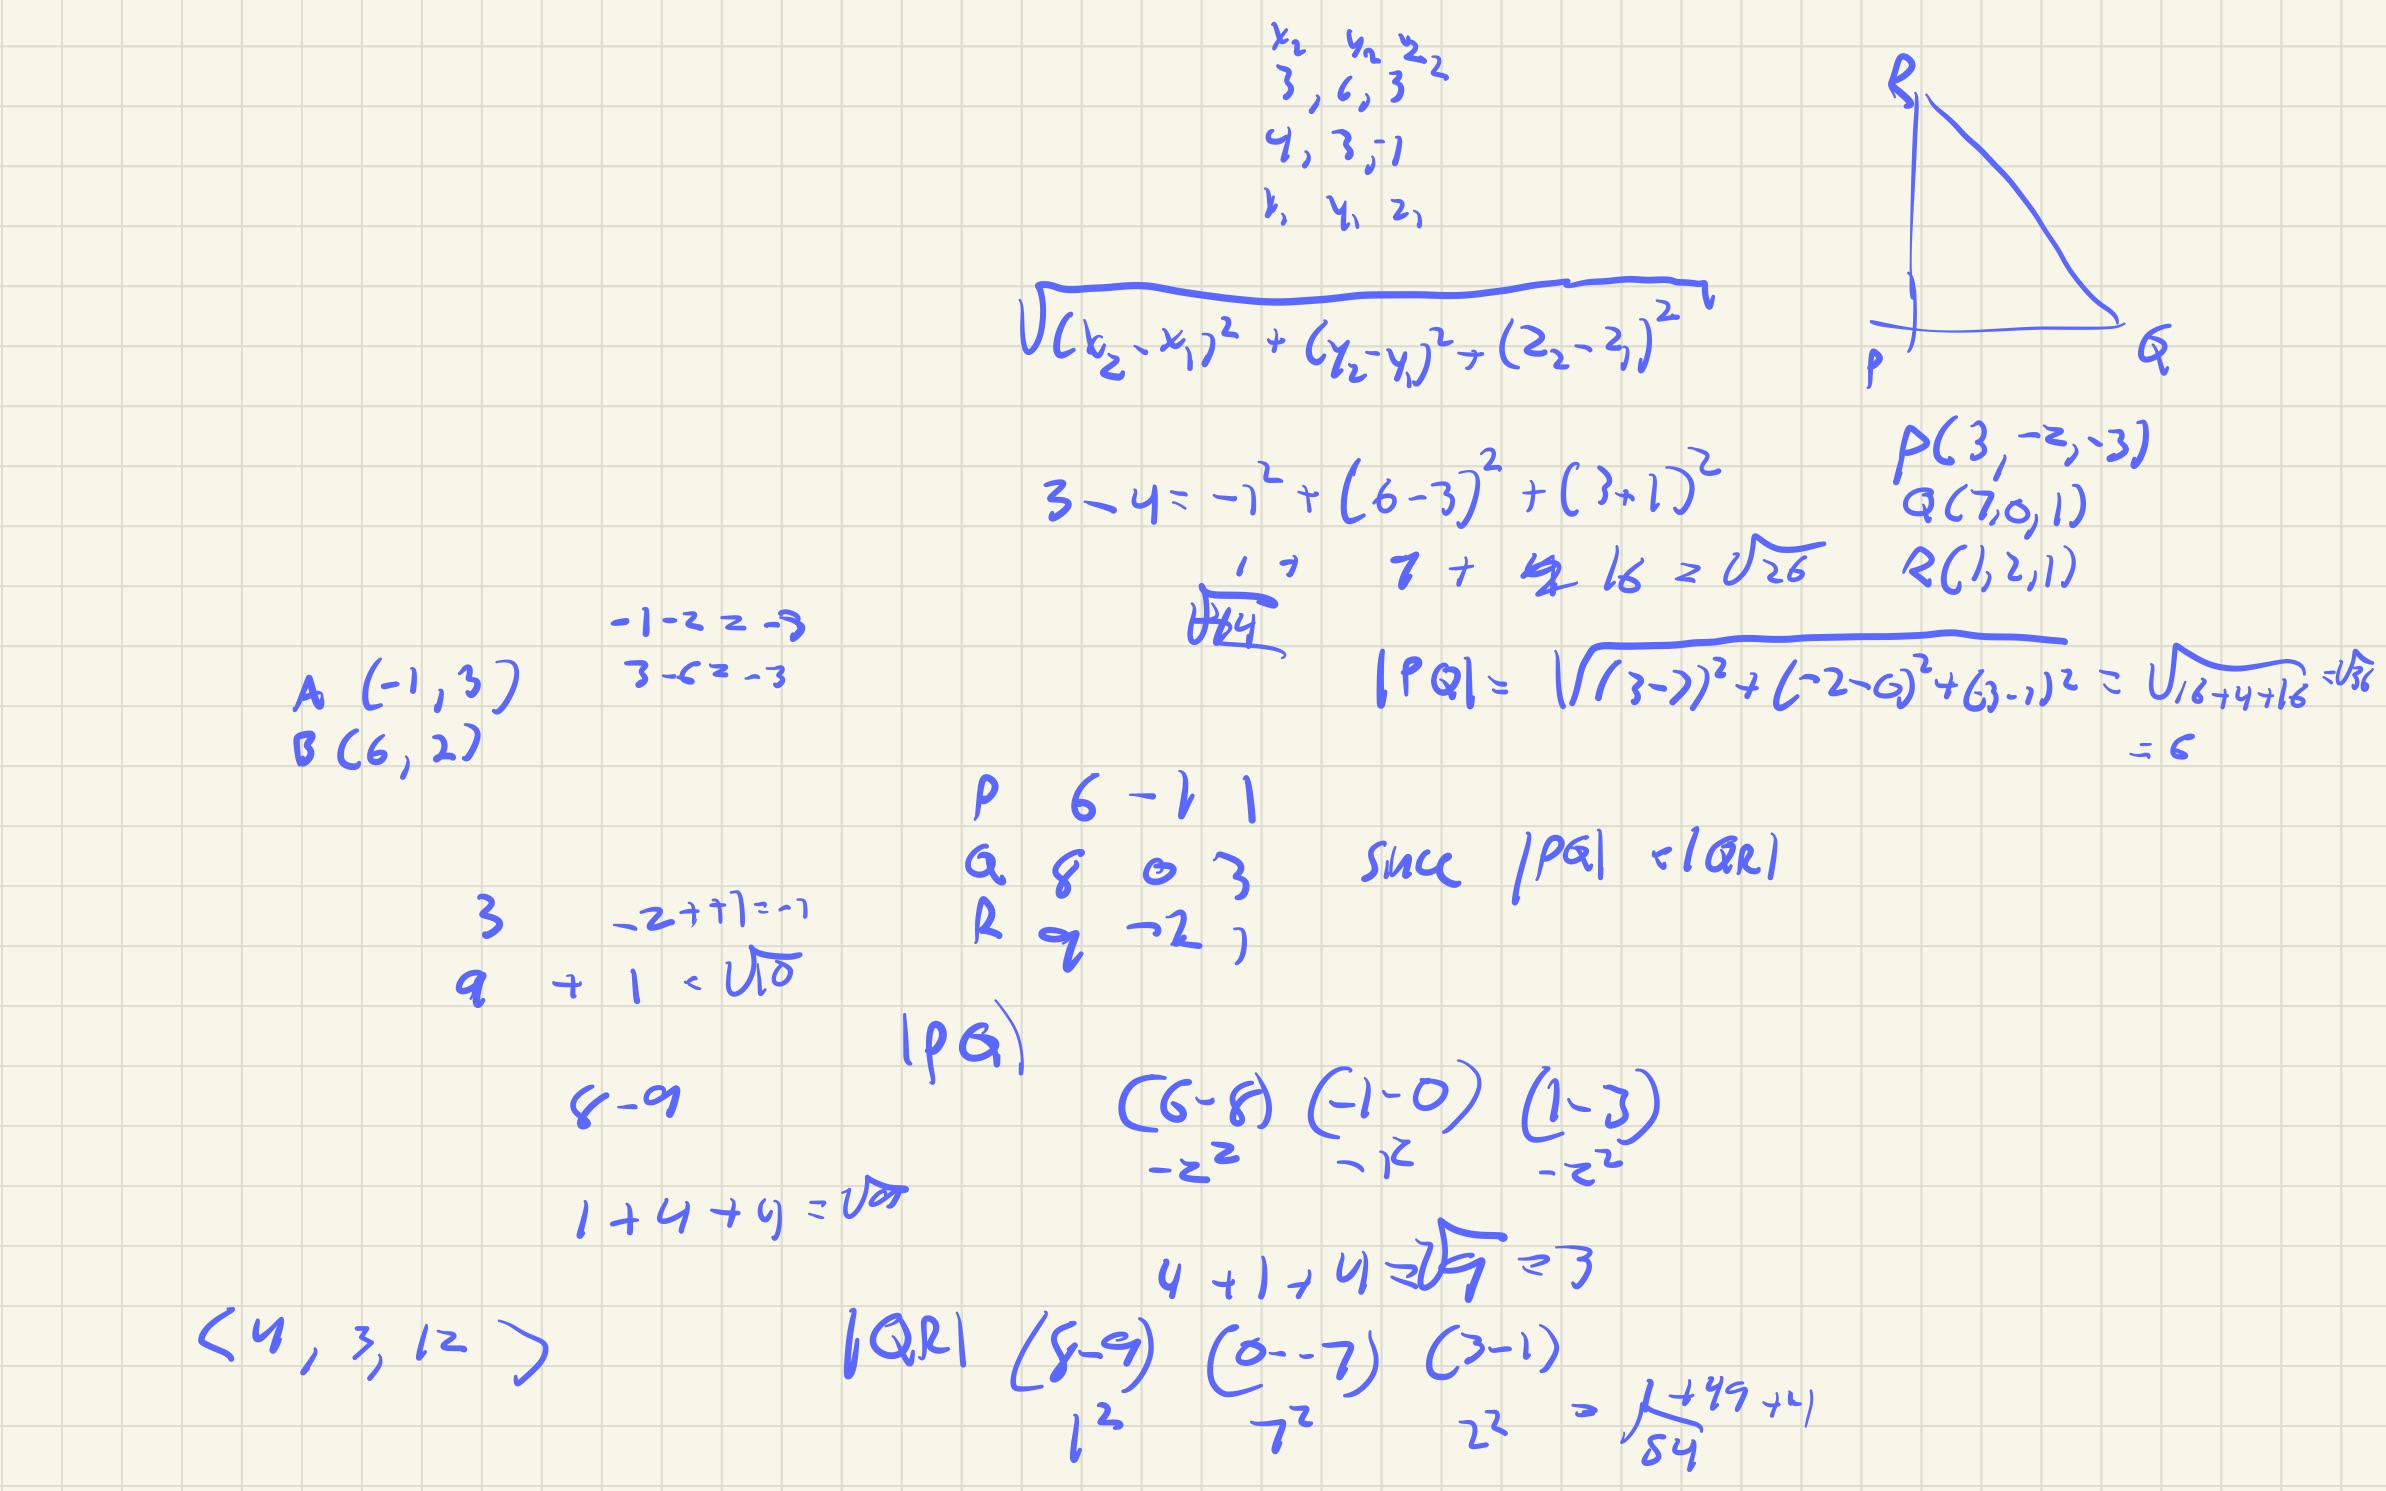 x₂ y₂ z₂
3, 6, 3
4, 3, -1
x₁ y₁ z₁
R
P
Q
√(x₂ - x₁)² + (y₂ - y₁)² + (z₂ - z₁)²
P(3, -2, -3)
Q(7, 0, 1)
R(1, 2, 1)
3 - 4 = -1² + (6 - 3)² + (3 + 1)²
9 + 16 = √26
|PQ| = √(3-7)² + (-2-0)² + (-3-1)² = √16+4+16 = √36
= 6
-1 - 2 = -3
3 - 6 = -3
A (-1, 3)
B (6, 2)
P 6 -1 1
Q 8 0 3
R 9 -2 1
since |PQ| = |QR|
3 -2 + +1 = -1
9 + 1 = √10
|PQ|
8 - 9
(6-8) (-1-0) (1-3)
-2² -1² -2²
1 + 4 + 4 = √9
4 + 1 + 4 = √9 = 3
<4, 3, 12>
|QR| (8-9) (0--7) (3-1)
1² 7² 2² = √1+49+4
54